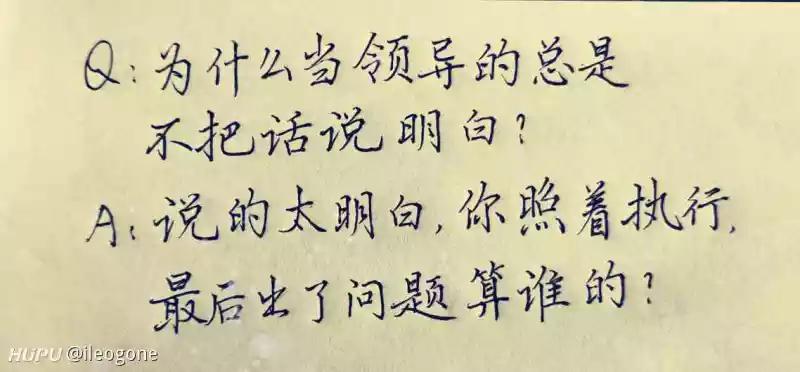 Q:为什么当领导的总是
不把话说明白?
A:说的太明白,你照着执行,
最后出了问题算谁的?
HUPU @ileogone